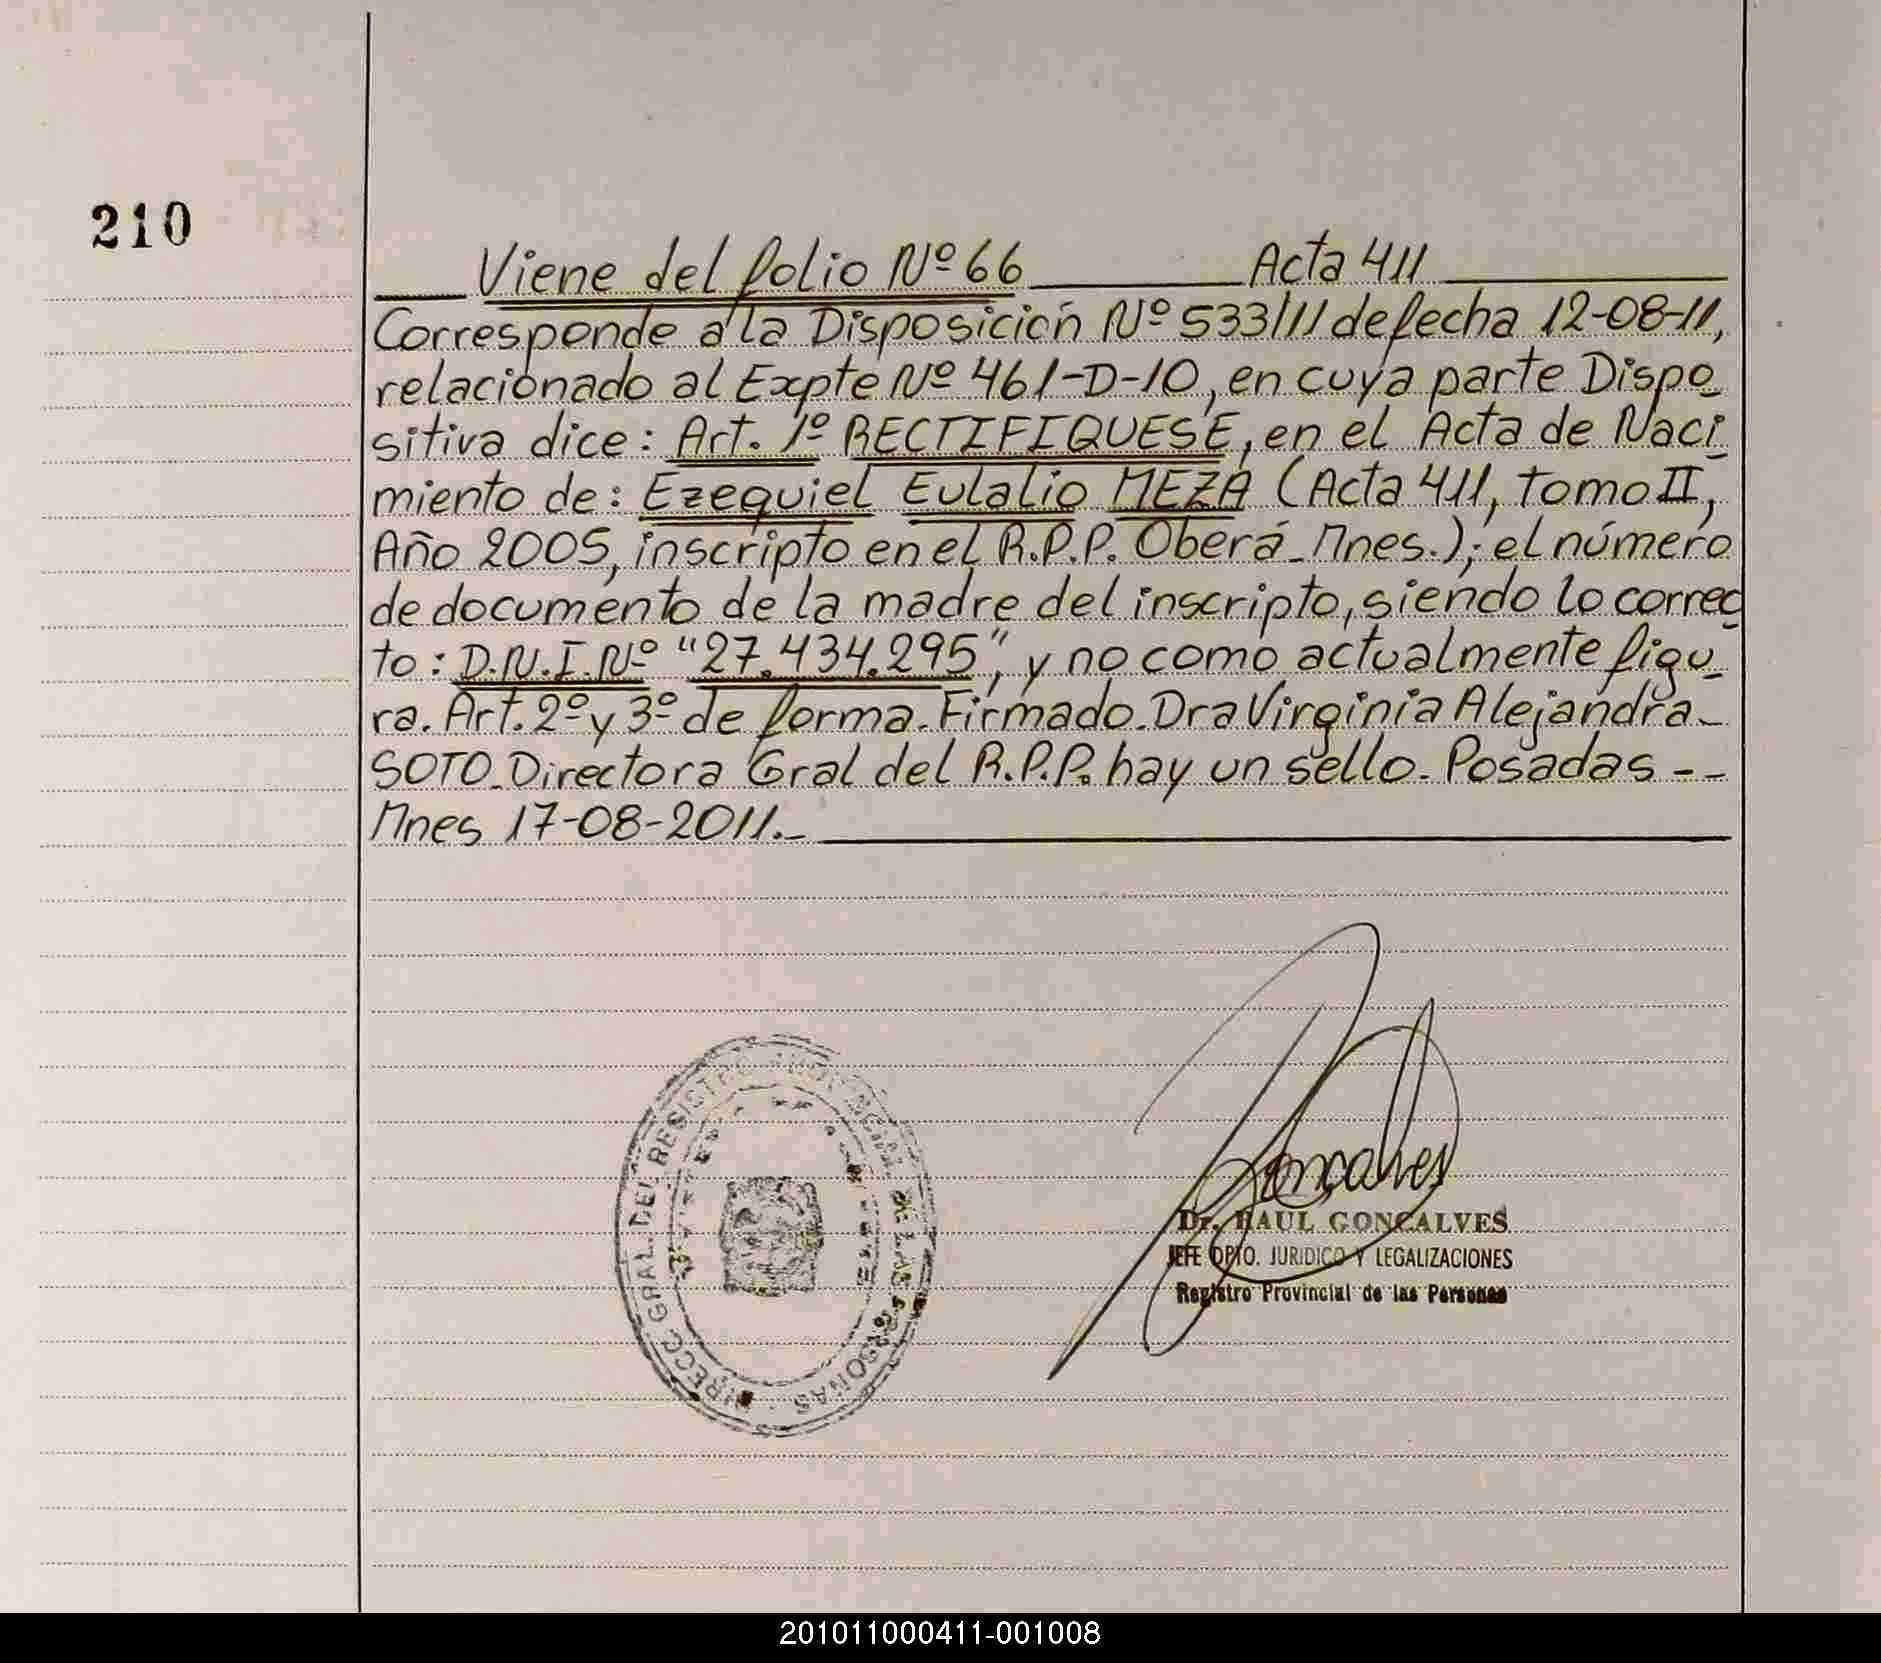 210
Viene del folio Nº 66 Acta 411
Corresponde a la Disposición Nº 533/11 de fecha 12-08-11,
relacionado al Expte Nº 461-D-10, en cuya parte Dispo
sitiva dice: Art. 1º RECTIFIQUESE, en el Acta de Naci
miento de: Ezequiel Eulalio MEZA (Acta 411, tomo II,
Año 2005, inscripto en el R.P.P. Oberá - Mnes.); el número
de documento de la madre del inscripto, siendo lo correc
to: D.N.I. Nº "27.434.295", y no como actualmente figu
ra. Art. 2º y 3º de forma. Firmado. Dra Virginia Alejandra -
SOTO - Directora Gral del R.P.P. hay un sello. Posadas - -
Mnes 17-08-2011. -
DIRECC. GRAL. DEL REGISTRO PROVINCIAL DE LAS PERSONAS
Goncalves
Dr. RAUL GONCALVES
JEFE DPTO. JURIDICO Y LEGALIZACIONES
Registro Provincial de las Personas
201011000411-001008